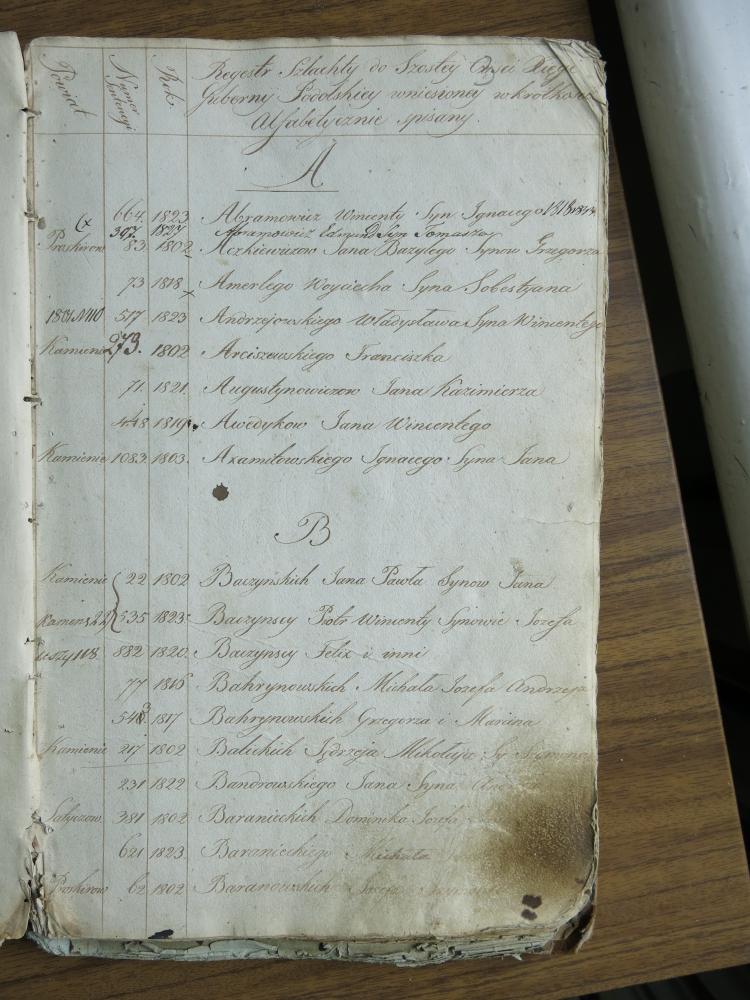 Powiat
Numer Sentencyi
Rok
Regestr Szlachty do Szostey Części Xięgi
Guberny Podolskiey wniesioney w krotkości
Alfabetycznie spisany.
A
664. 1823 Abramowicz Wincenty Syn Ignacego
307. 1827 Abramowicz Edmund Syn Tomasza
Proskirow 83. 1802 Aczkiewiczow Jana Bazylego Synow Grzegorza
73 1818 Amerlego Woyciecha Syna Sobestyana
517 1823 Andrzejowskiego Władysława Syna Wincentego
Kamienie 273. 1802 Arciszewskiego Franciszka
71. 1821. Augustynowiczow Jana Kazimierza
448 1819. Awedykow Jana Wincentego
Kamienie 1083. 1803. Axamitowskiego Ignacego Syna Jana
B
Kamienie 22 1802 Baczynskich Jana Pawła Synow Jana
535 1823 Baczynscy Piotr Wincenty Synowie Jozefa
882 1820. Baczynscy Felix i inni
77 1816 Bahrynowskich Michała Jozefa Andrzeja
548 1817 Bahrynowskich Grzegorza i Marcina
Kamienie 217 1802 Balickich Jędrzeja Mikołaja Sy Szymona
231 1822 Bandrowskiego Jana Syna
381 1802 Baranieckich Dominika Jozefa
621 1823. Baranieckiego Michała
Proskirow 62 1802 Baranowskich